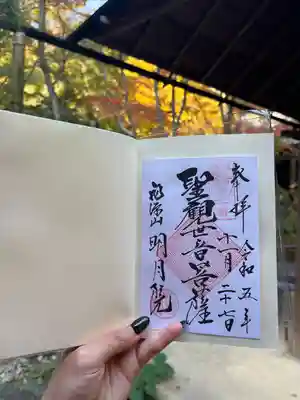 奉拝
令和五年
十一月
二十七日
聖觀世音菩薩
福源山
明月院